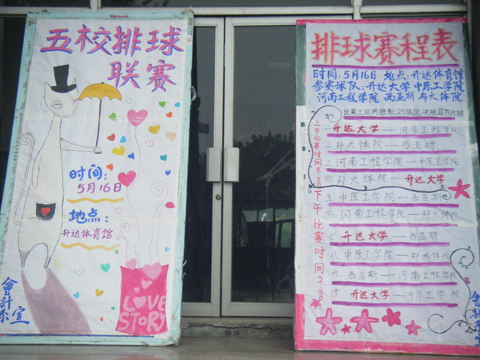 五校排球
联赛
时间:
5月16日
地点:
升达体育馆
LOVE
STORY
会计系宣
排球赛程表
时间:5月16日 地点:升达体育馆
参赛球队:升达大学 中原工学院
河南工程学院 西亚斯 郑大体院
上午比赛时间8:30
下午比赛时间2:30
一 升达大学——河南工程学院
二 郑大体院——西亚斯
三 河南工程学院——中原工学院
四 郑大体院——升达大学
五 中原工学院——西亚斯
六 河南工程学院——郑大体院
七 升达大学——西亚斯
八 中原工学院——郑大体院
九 西亚斯——河南工程学院
十 升达大学——中原工学院